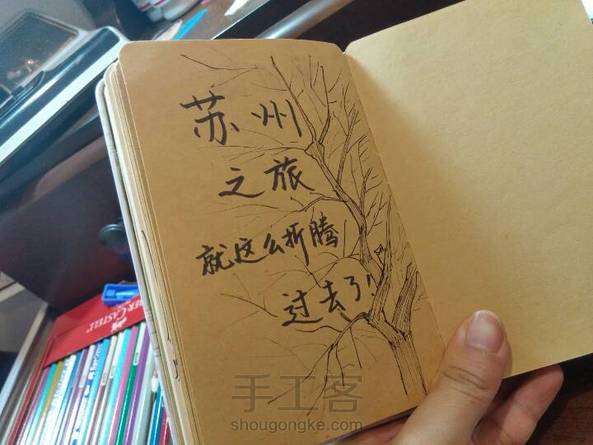 苏州
之旅
就这么折腾
过去了!
手工客
shougongke.com